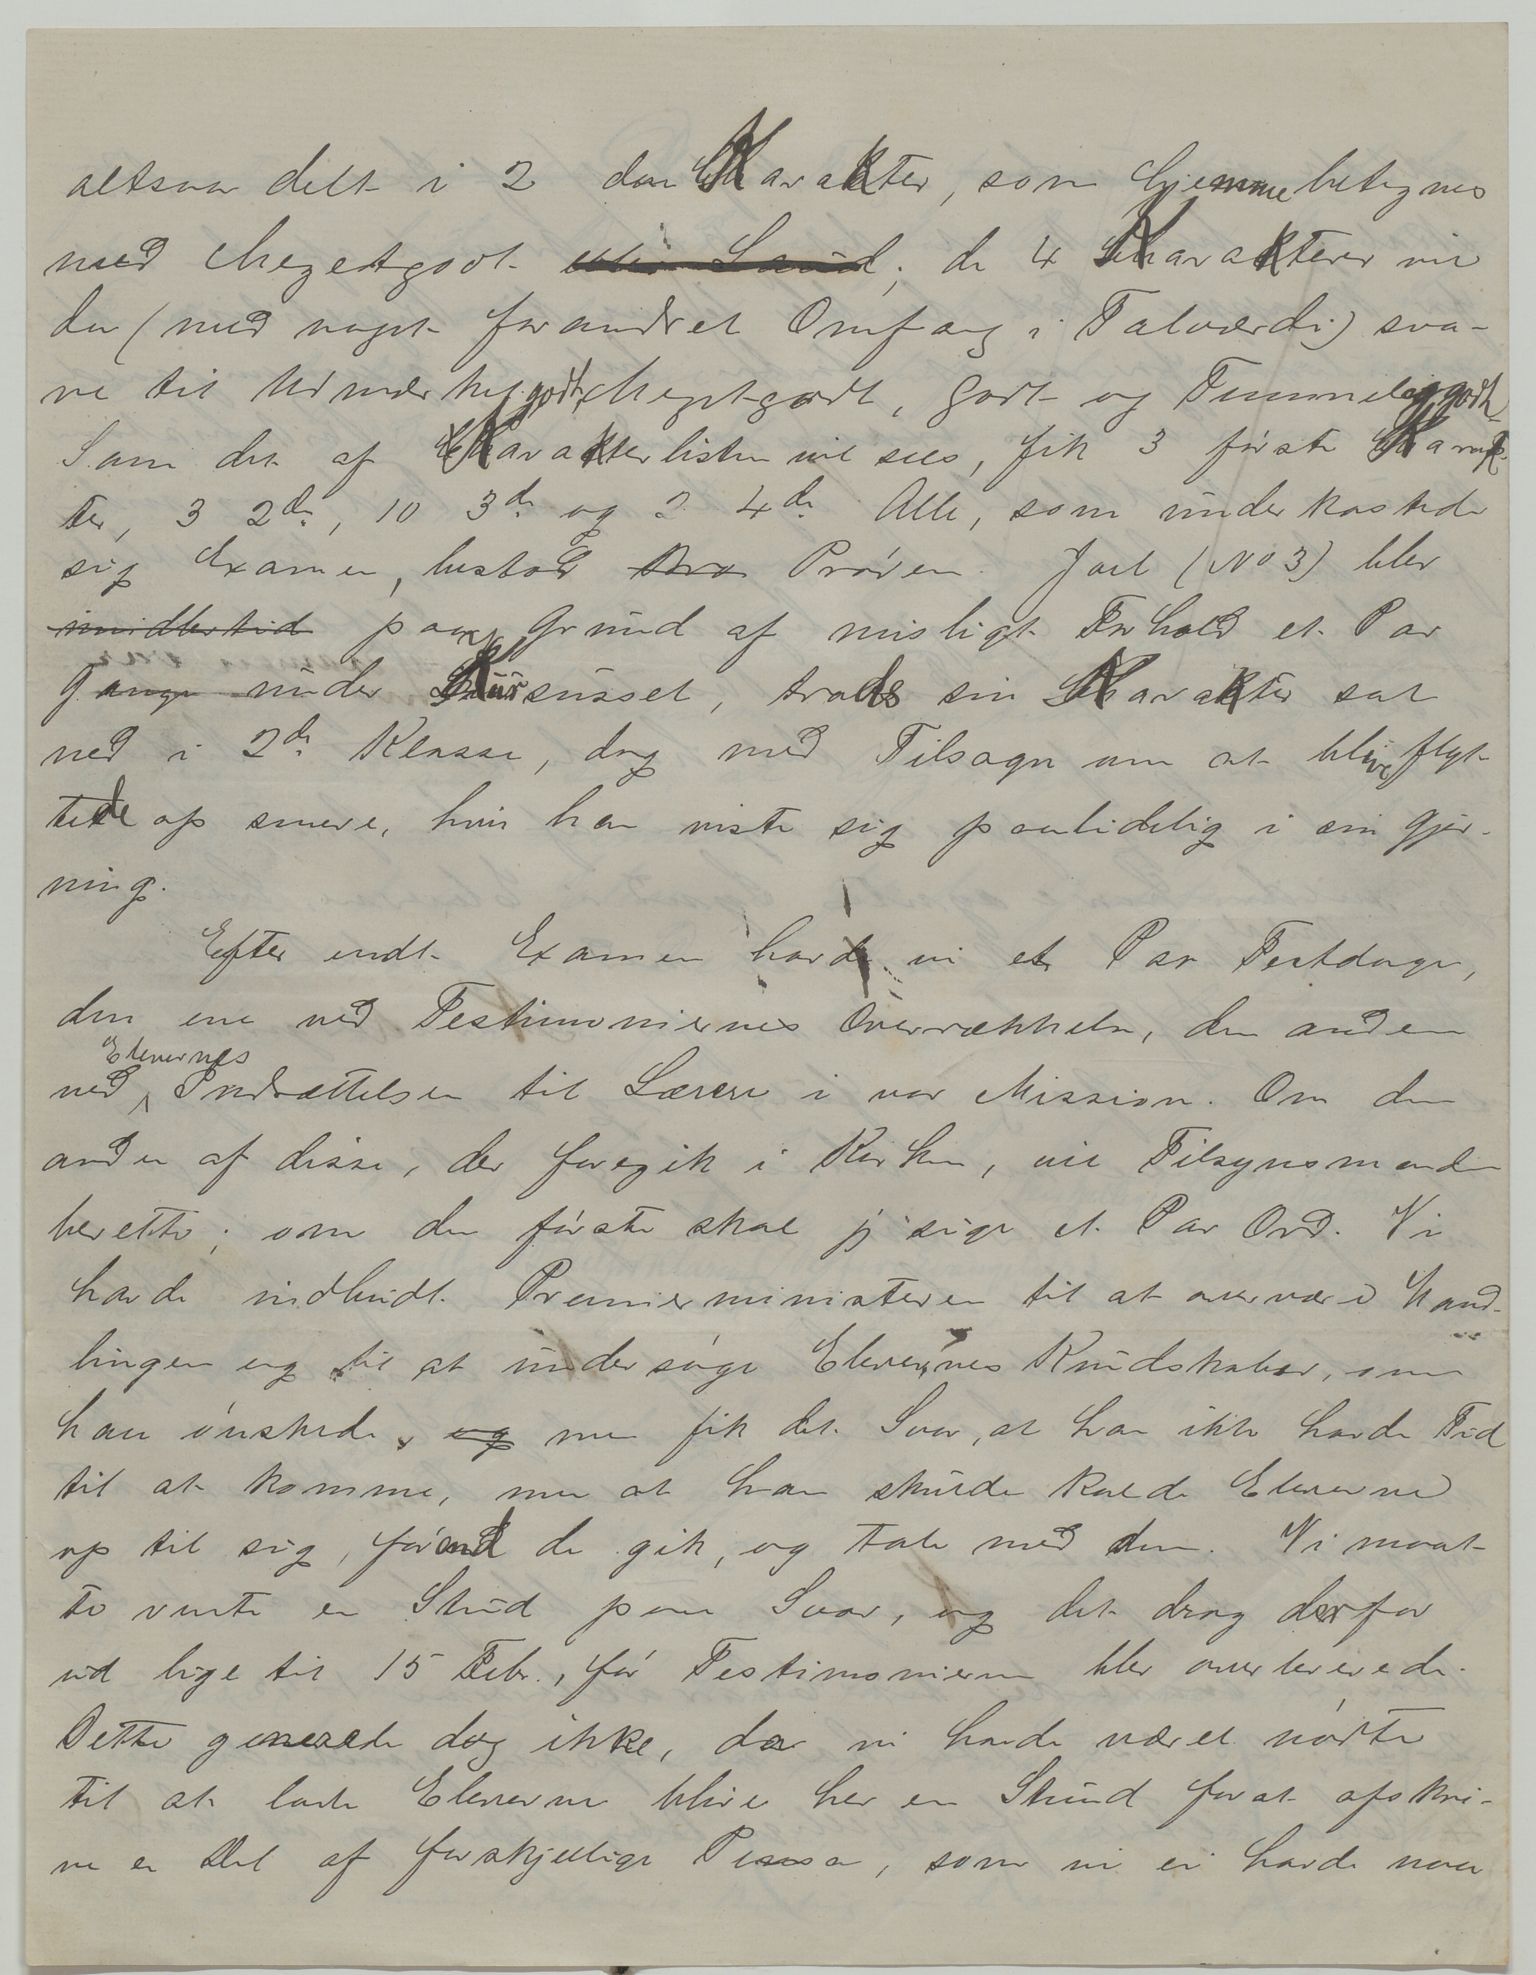 altsaa delt i 2 den Karakter, som hjemme betegnes
med Megetgodt eller Laud; de 4 Karakterer vil
da (med noget forandret Omfang i Talværdi) sva-
re til Udmærketgodt, Megetgodt, Godt og Temmeliggodt.
Som det af Karakterlisten vil sees, fik 3 første Karak-
ter, 3 2de, 10 3de og 2 4de. Alle, som underkastede
sig Examen, bestod Prøven. Joel (No 3) blev
imidlertid paa Grund af misligt Forhold et Par
Gange under Kursusset, trods sin Karakter sat
ned i 2de Klasse, dog med Tilsagn om at blive flyt-
tede op senere, hvis han viste sig paalidelig i sin Gjer-
ning.
Efter endt Examen havde vi et Par Festdage,
den ene ved Testimoniernes Overrækkelse, den anden
ved Elevernes Indsættelsen til Lærere i vor Mission. Om den
anden af disse, der foregik i Kirken, vil Tilsynsmanden
berette; om den første skal jeg sige et Par Ord. Vi
havde indbudt Premierministeren til at overvære Hand-
lingen og til at undersøge Elevernes Kundskaber, om
han ønskede, og men fik det Svar, at han ikke havde Tid
til at komme, men at han skulde kalde Eleverne
op til sig, førend de gik, og tale med dem. Vi maat-
te vente en Stund paa Svar, og det drog derfor
ud lige til 15 Febr., før Testimonierne blev overleverede.
Dette generede dog ikke, da vi havde været nødte
til at lade Eleverne blive her en Stund for at afskri-
ve en Del af forskjellige Pensa, som vi ei havde naaet